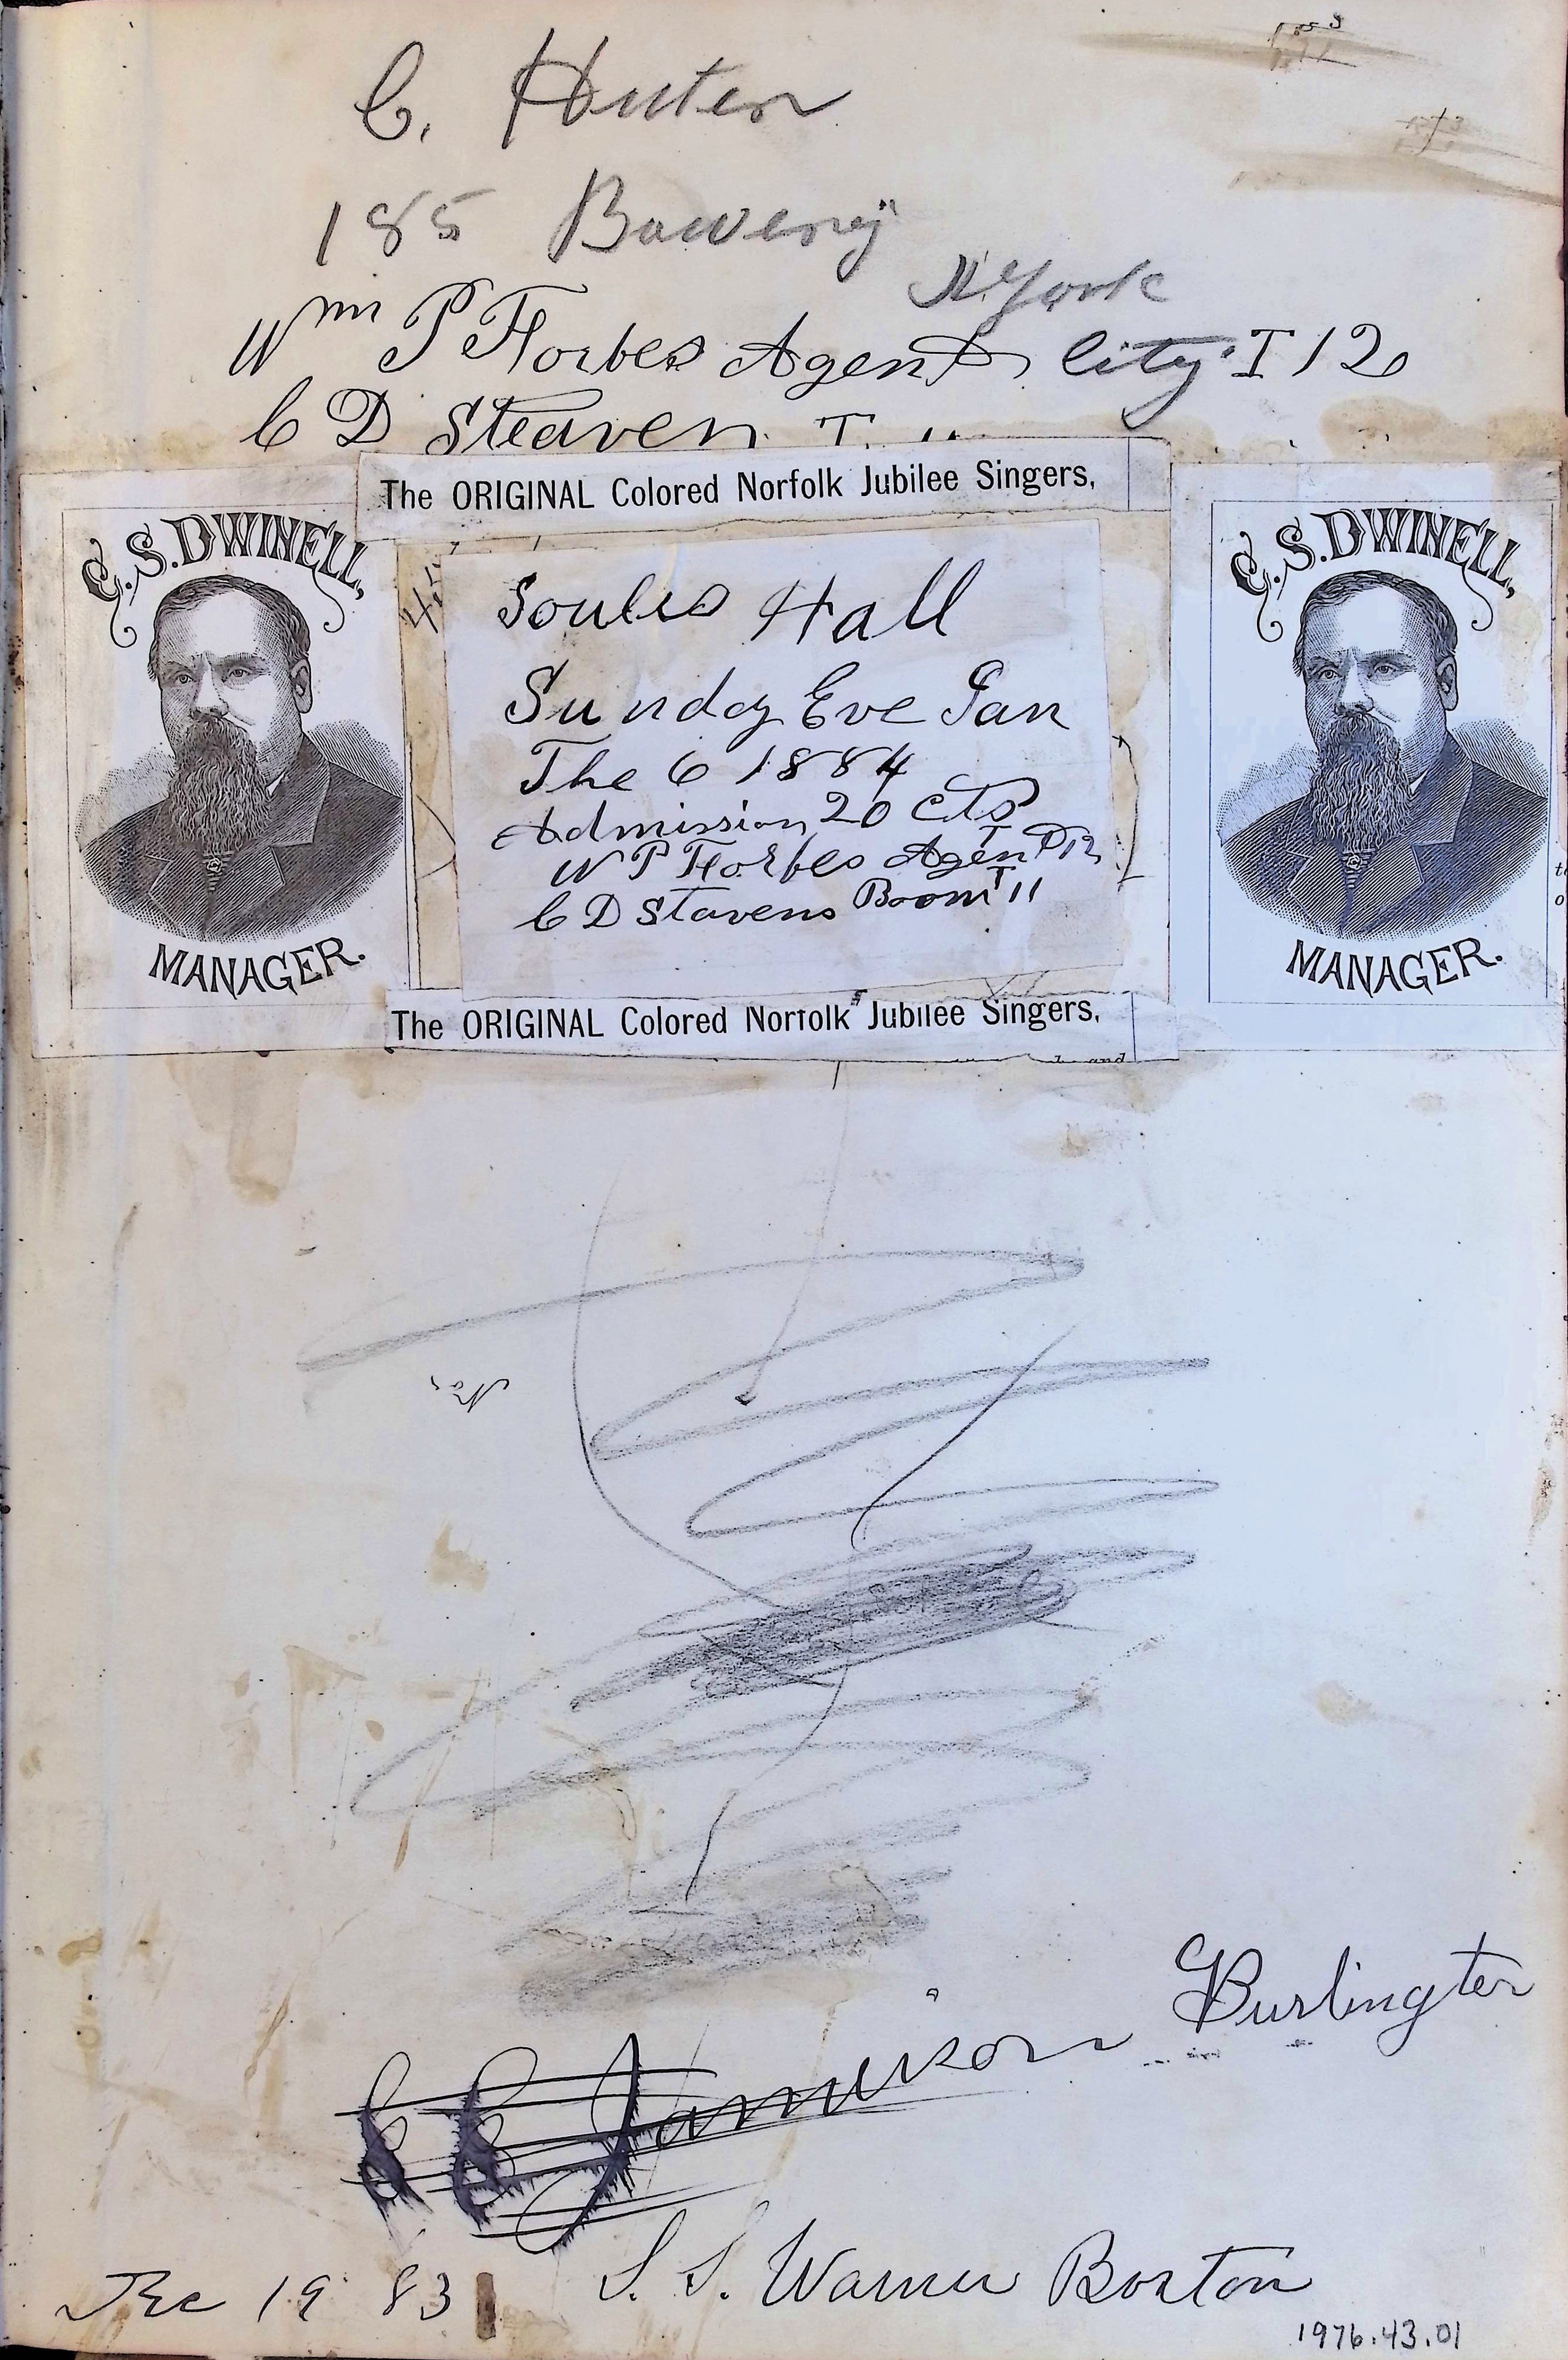 C. Huter
185 Bowery
N. York
Wm P Forbes Agent City T 12
C D Steaven T.
The ORIGINAL Colored Norfolk Jubilee Singers,
C. S. DWINELL,
MANAGER.
Soules Hall
Sunday Eve Jan
The 6 1884
Admission 20 cts
W P Forbes Agent 12
C D Stavens Boom T 11
C. S. DWINELL,
MANAGER.
The ORIGINAL Colored Norfolk Jubilee Singers,
and
No,
Burlington
Jamieson
Dec 19 83
S. S. Warner Boston
1976.43.01